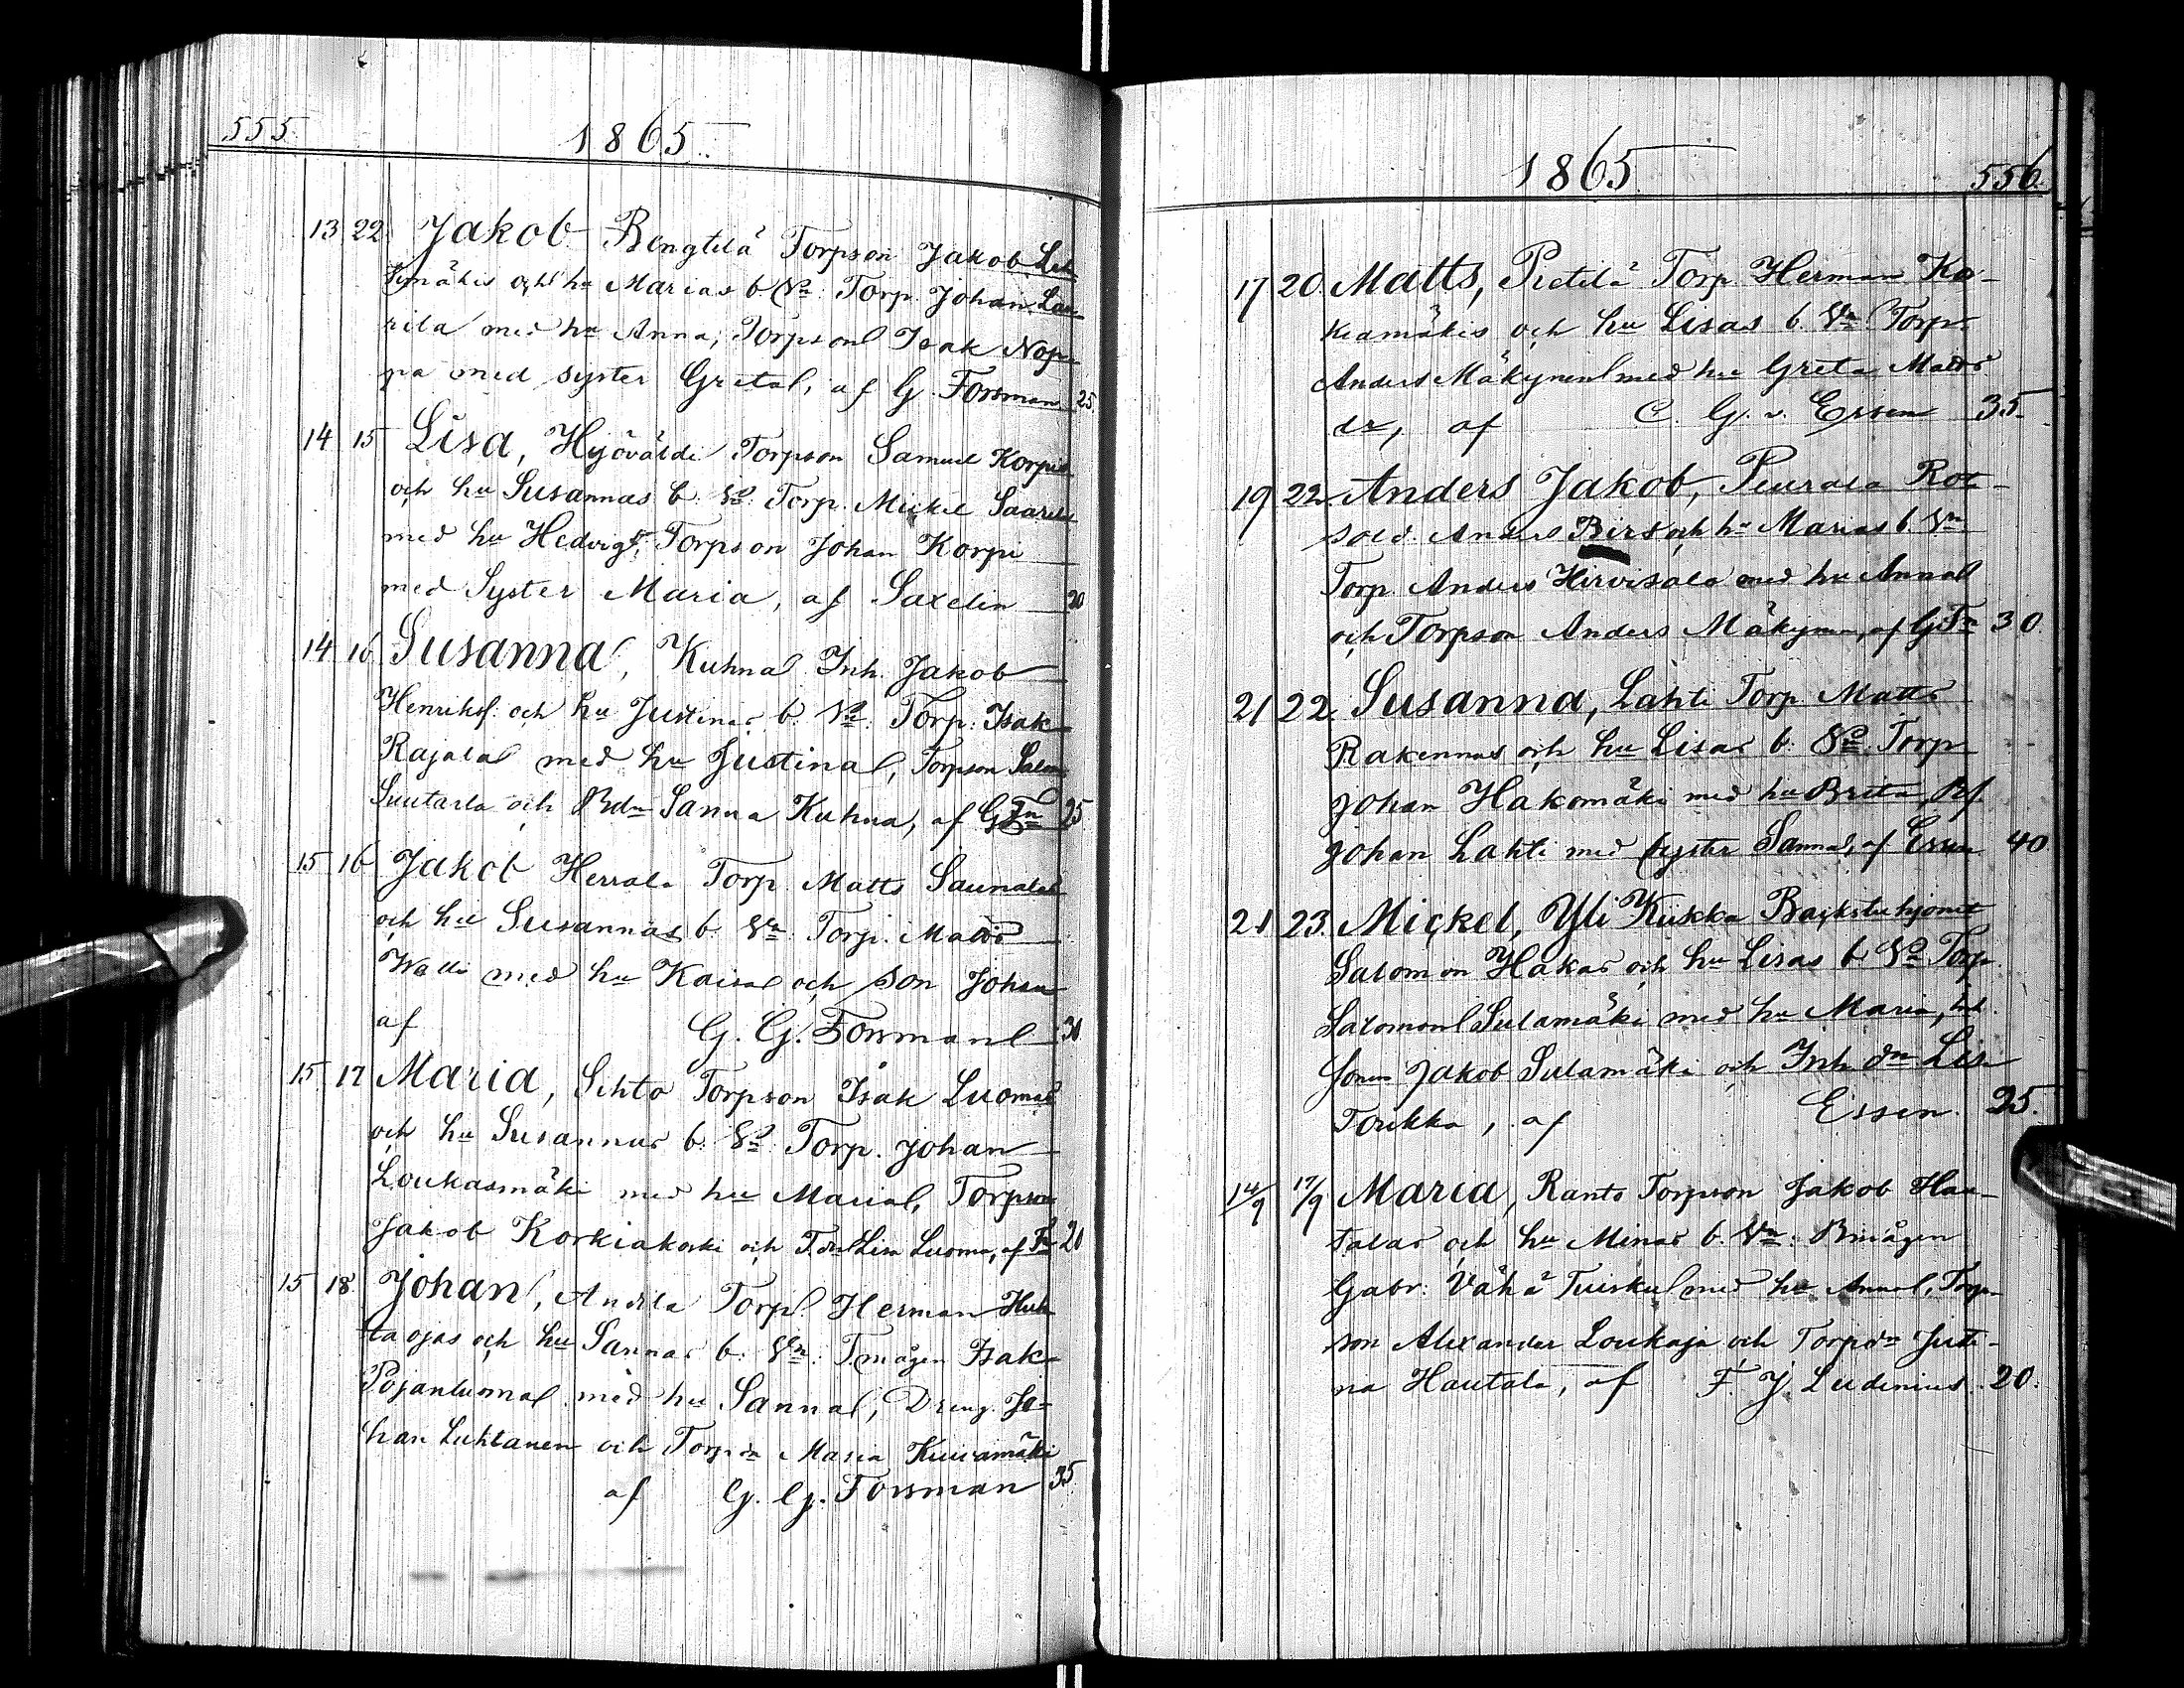 555.
1865.
13 22 Jakob Bengtilä Torpson Jakob
mäkis och hu Marias b. Vn: Torp. Johan Lau
rila med hu Anna, Torpson Isak Nop-
pa med syster Greta, af G. Forsman 25.
14 15 Lisa, Hyövälde Torpson Samuel Korpis
och hu Susannas b. Vn: Torp. Mickel Saarela
med hu Hedvig, Torpson Johan Korpi
med Syster Maria, af Saxelin 20
14 16 Susanna, Kuhna Inh. Jakob
Henriksf. och hu Justinas b. Vn: Torp. Isak
Rajala med hu Justina, Torpson Salom
Suutarla och Bdn Sanna Kuhna, af G Fn 25
15 16 Jakob Herrala Torp. Matts Saunalas
och hu Susannas b. Vn: Torp. Matts
Walli med hu Kaisa och son Johan
af G. G. Forsman 30
15 17 Maria, Sihto Torpson Isak Luomas
och hu Susannas b. Vn: Torp. Johan
Loukasmäki med hu Maria, Torpson
Jakob Korkiakoski och T.dr Lisa Luoma, af Fn 20
15 18 Johan, Andila Torp. Herman Huh
ta ojas och hu Sannas b. Vn: Tmågen Isak
Pojanluoma med hu Sanna, Dreng. Jo-
han Luhtanen och Torpdr Maria Kuuramäki
af G. G. Forsman 35.
1865
556.
17 20. Matts, Pietilä Torp. Herman Kor-
kiamäkis och hu Lisas b. Vn: Torp.
Anders Mäkynen med hu Greta Matts
dr, af C. G. v. Essen 35.
19 22. Anders Jakob, Peurala Rot-
sold. Anders Birs och hu Marias b. Vn
Torp. Anders Hirvisala med hu Anna
och Torpson Anders Mäkynen, af G Fn 30.
21 22. Susanna, Lahti Torp. Matts
Rakennus och hu Lisas b. Vn: Torp
Johan Hakomäki med hu Brita,
Johan Lahti med syster Sanna, af Essen 40
21 23. Mickel, Yli Kiikka Backstuhjonet
Salomon Hakas och hu Lisas b. Vn: Torp.
Salomon Sulamäki med hu Maria,
sonen Jakob Sulamäki och Inh dr Lisa
Toukka, af Essen. 25.
14/9 17/9 Maria, Ranto Torpson Jakob Hau-
talas och hu Minas b. Vn: Bmågen
Gabr. Vähä Tuisku med hu Anna, Torp-
son Alexander Loukaja och Torpdr Justi-
na Hautala, af F. J. Ludenius. 20.